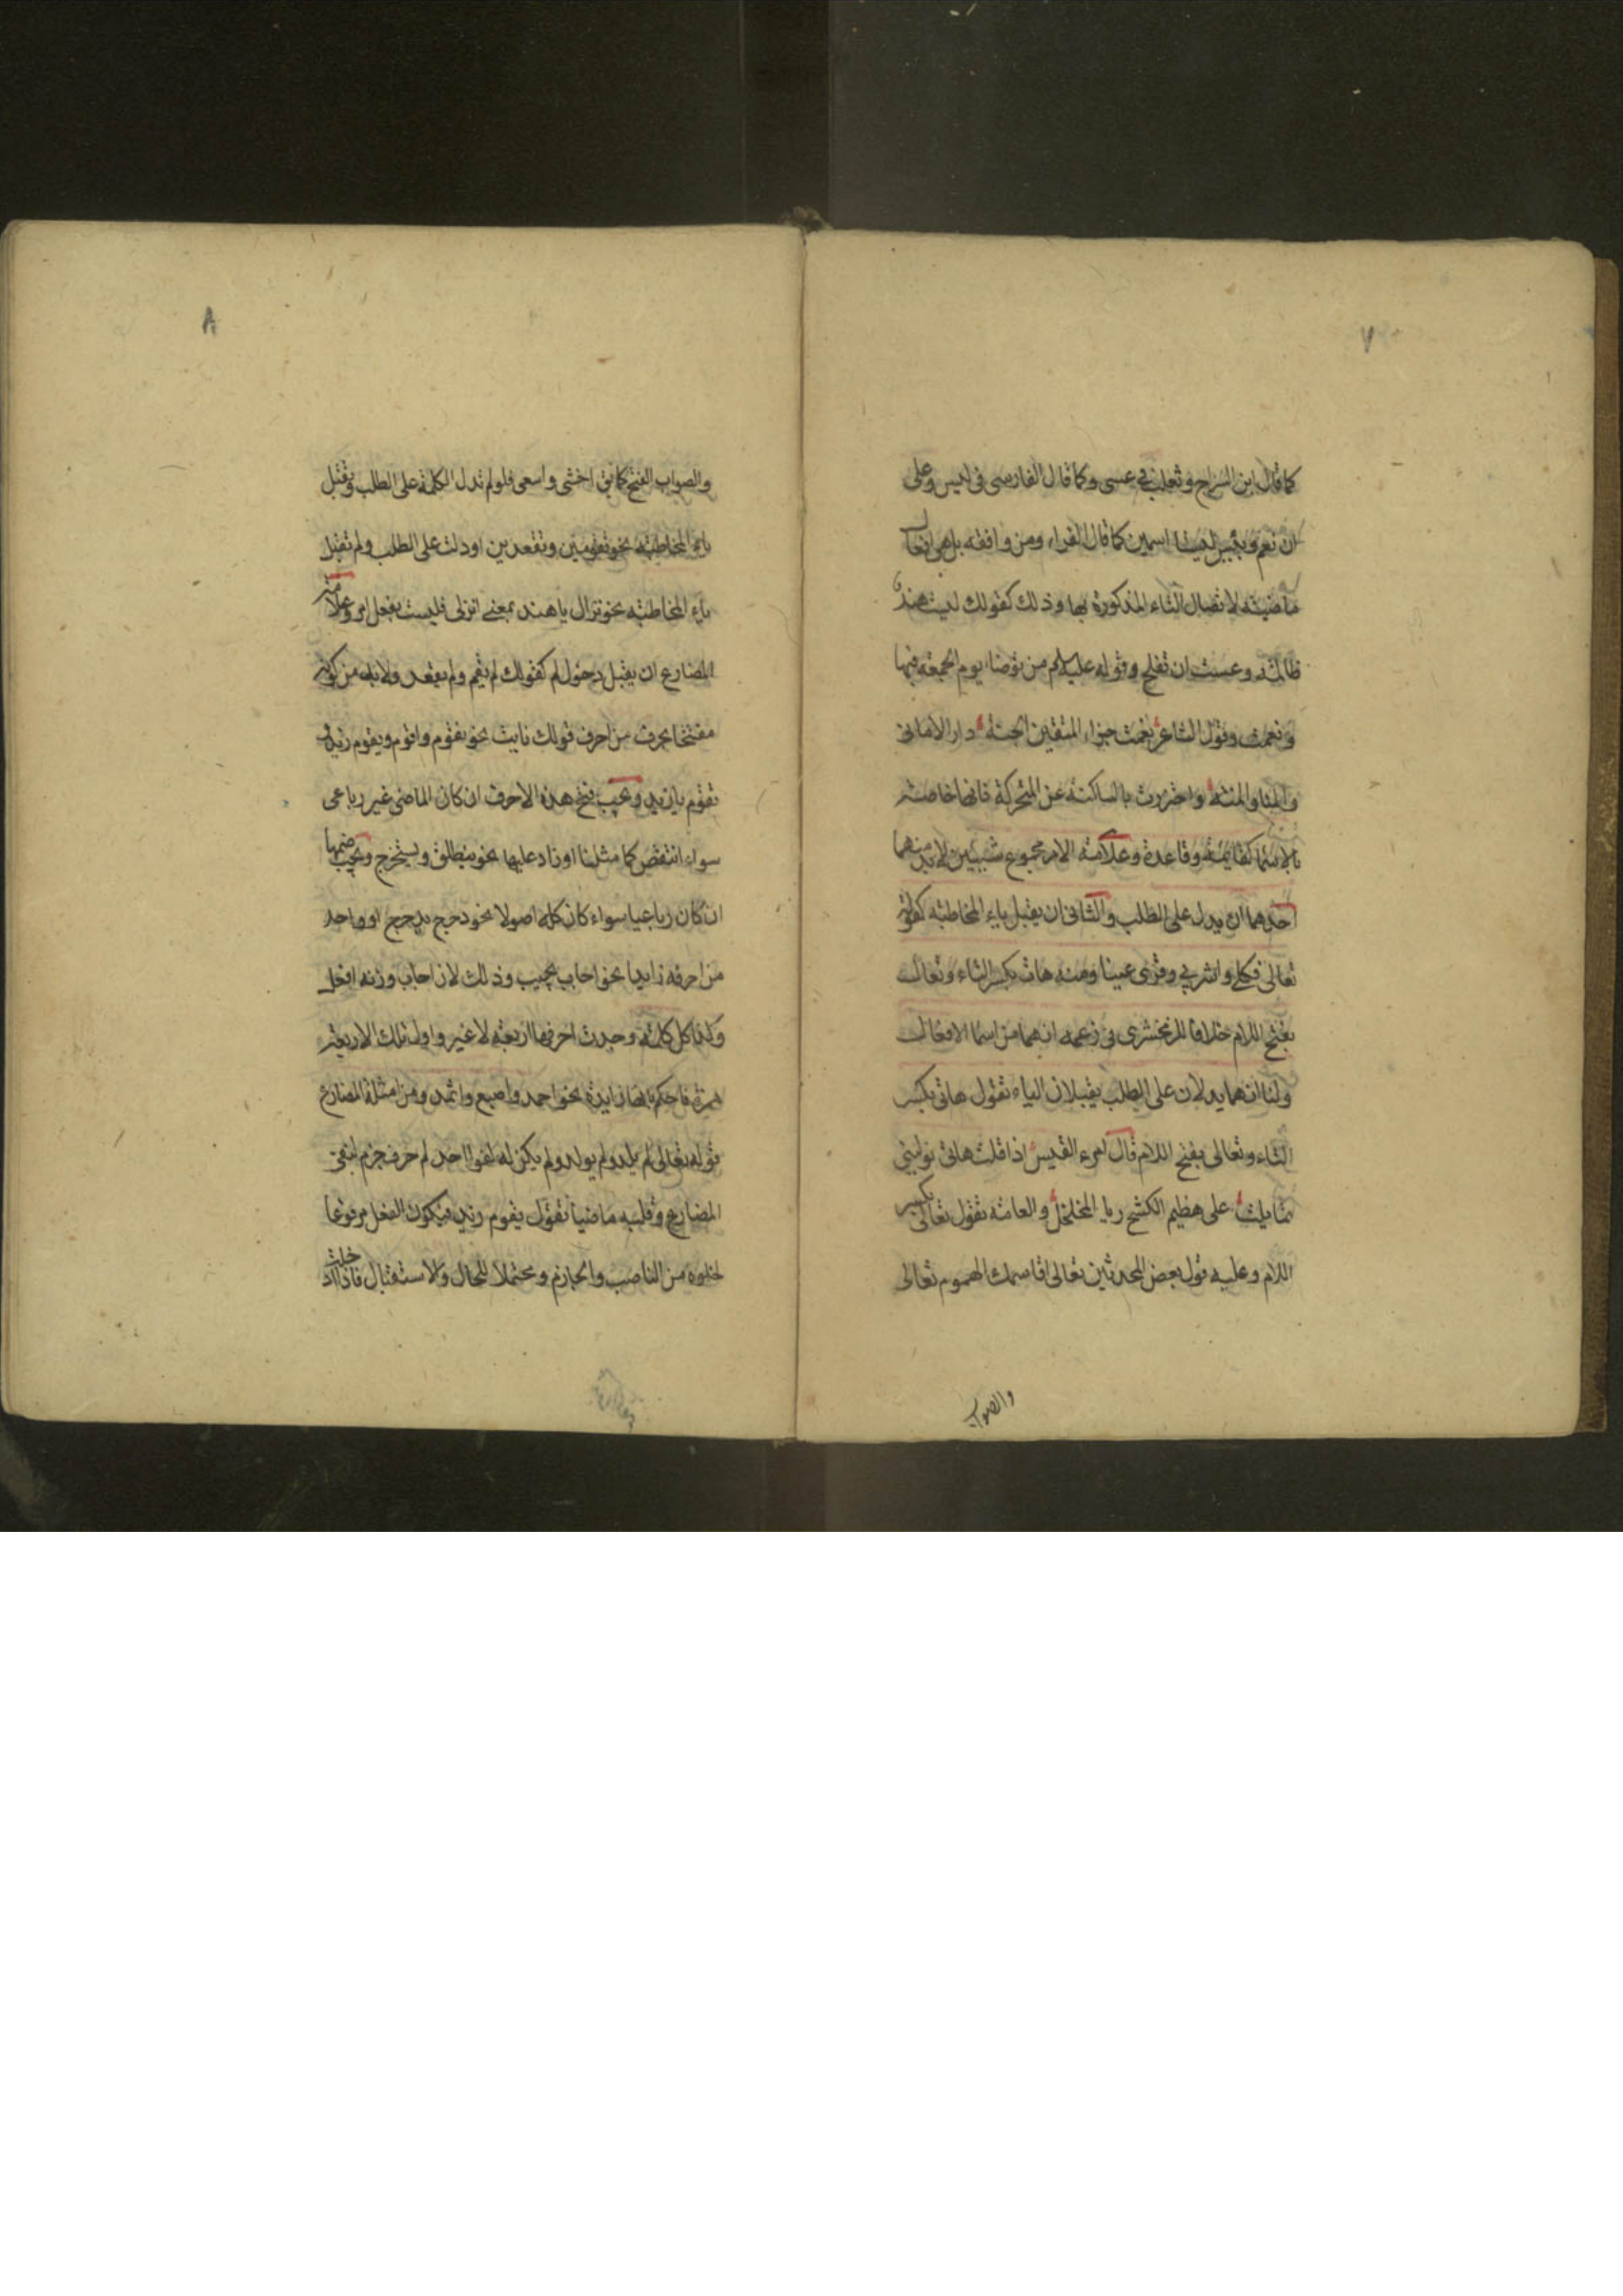 ٧
كما قال ابن السراج وثعلب في عسى وكما قال الفارسى فى ليس وعلى
ان نعم وبئس ليستا اسمين كما قال الفراء ومن وافقه بل هى افعال
ماضية لاتصال التاء المذكورة بها وذلك كقولك ليست هند
ظالمة وعست ان تفلح وقوله عليه السلام من توضاء يوم الجمعة فبها
ونعمت وقول الشاعر نعمت جزاء المتقين الجنة دار الامانى
والمنا والمنة واحترزت بالساكنة عن المتحركة فانها خاصة
بالاسما كقايمة وقاعدة وعلامة الامر مجموع شيئين لا بد منهما
احدهما ان يدل على الطلب والثانى ان يقبل ياء المخاطبة كقوله
تعالى فكلى واشربي وقرى عينا ومنه هات بكسر التاء وتعال
بفتح اللام خلافا للزمخشرى فى زعمه انهما من اسما الافعال
ولنا انهما يدلان على الطلب يقبلان الياء تقول هاتى بكسر
التاء وتعالى بفتح اللام قال امرء القيس اذا قلت هاتى نولينى
تمايلت على هظيم الكشح ريا المخلخل والعامة تقول تعالى بكسر
اللام وعليه قول بعض المحدثين تعالى اقاسمك الهموم تعالى
والصواب
٨
والصواب الفتح كما يق اخشى واسعى فلو لم تدل الكلمة على الطلب وتقبل
ياء المخاطبة نحو تقومين وتقعدين او دلت على الطلب ولم تقبل
ياء المخاطبة نحو نزال يا هند بمعنى انزلى فليست بفعل امر وعلامة
المضارع ان يقبل دخول لم كقولك لم يقم ولم يقعد ولا بد من كونه
مفتتحا بحرف من احرف قولك نايت نحو نقوم واقوم ويقوم زيد و
تقوم يا زيد ويجب فتح هذه الاحرف ان كان الماضى غير رباعى
سواء انتقص كما مثلنا او زاد عليها نحو ينطلق ويستخرج ويجب ضمها
ان كان رباعيا سواء كان كله اصولا نحو دحرج يدحرج او واحد
من احرفه زايدا نحو اجاب يجيب وذلك لان اجاب وزنه افعل
وكذا كل كلمة وجدت احرفها اربعة لا غير واول تلك الاربعة
همزة فاحكم بانها زايدة نحو احمد واصبع واثمد ومن امثلة المضارع
قوله تعالى لم يلد ولم يولد ولم يكن له كفوا احد لم حرف جزم لنفى
المضارع وقلبه ماضيا تقول يقوم زيد فيكون الفعل مرفوعا
لخلوه من الناصب والجازم ومحتملا للحال والاستقبال فاذا ادخلت